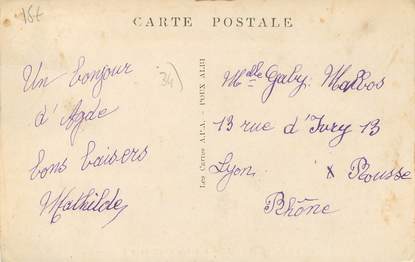 15€
CARTE POSTALE
Un bonjour
d'Agde
bons baisers
Mathilde
34)
Les Cartes A.P.A. — POUX ALBI
Mdlle Gaby. Malbos
13 rue d'Ivry 13
Lyon x Rousse
Rhône